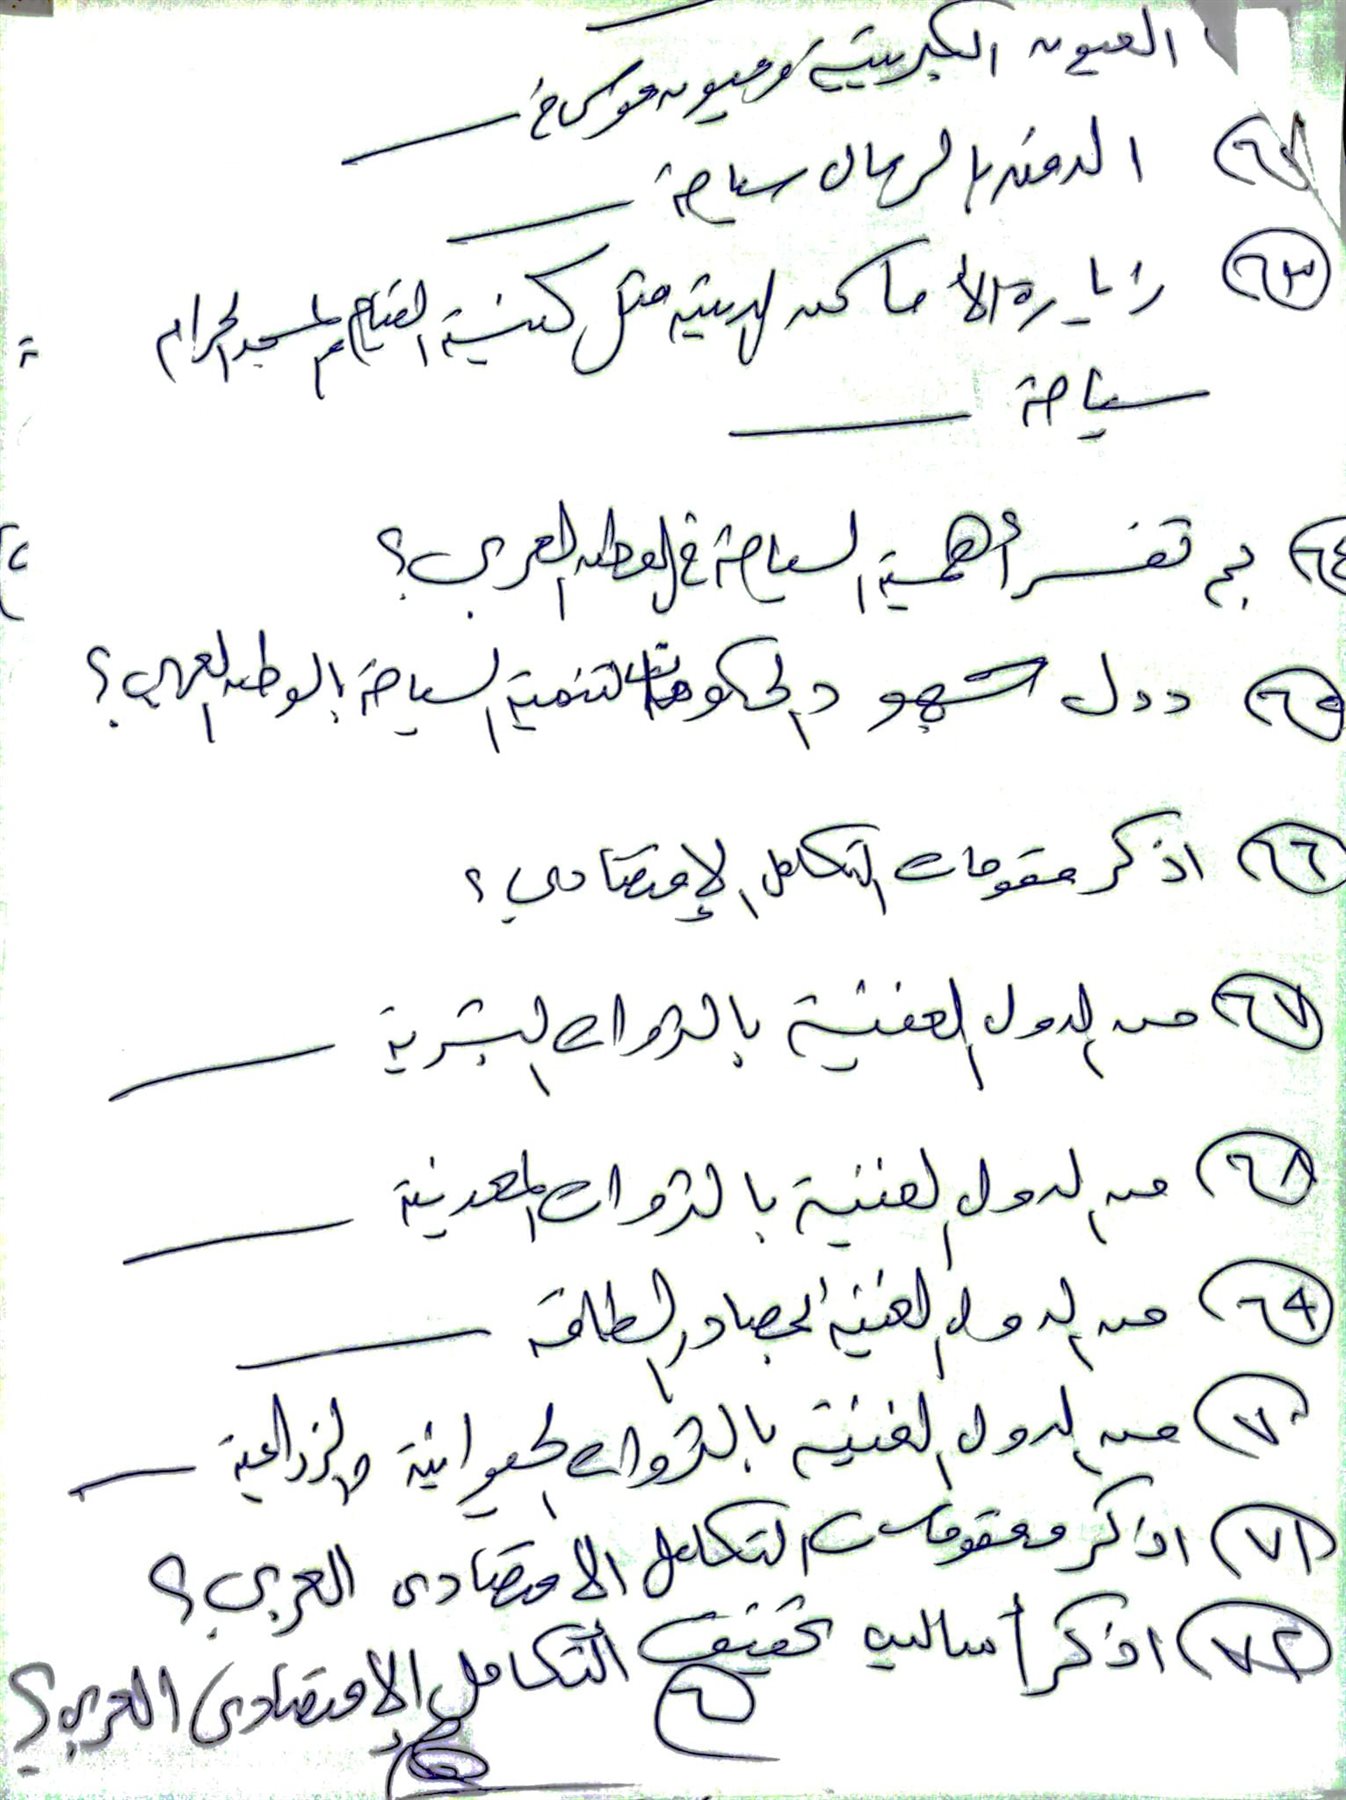 العيون الكبريتية وعيون موسى في ــــــ
(٦٢) الدفن بالرمال سياحة ــــــ
(٦٣) زيارة الأماكن الدينية مثل كنيسة القيامة والمسجد الحرام
سياحة ــــــ
(٦٤) بم تفسر أهمية السياحة في الوطن العربي؟
(٦٥) دلل جهود الحكومات لتنمية السياحة بالوطن العربي؟
(٦٦) اذكر مقومات التكامل الإقتصادي؟
(٦٧) من الدول الغنية بالثروات البشرية ــــــ
(٦٨) من الدول الغنية بالثروات المعدنية ــــــ
(٦٩) من الدول الغنية بمصادر الطاقة ــــــ
(٧٠) من الدول الغنية بالثروات الحيوانية والزراعية ــــــ
(٧١) اذكر معوقات التكامل الاقتصادى العربي؟
(٧٢) اذكر أساليب تحقيق التكامل الاقتصادى العربي؟